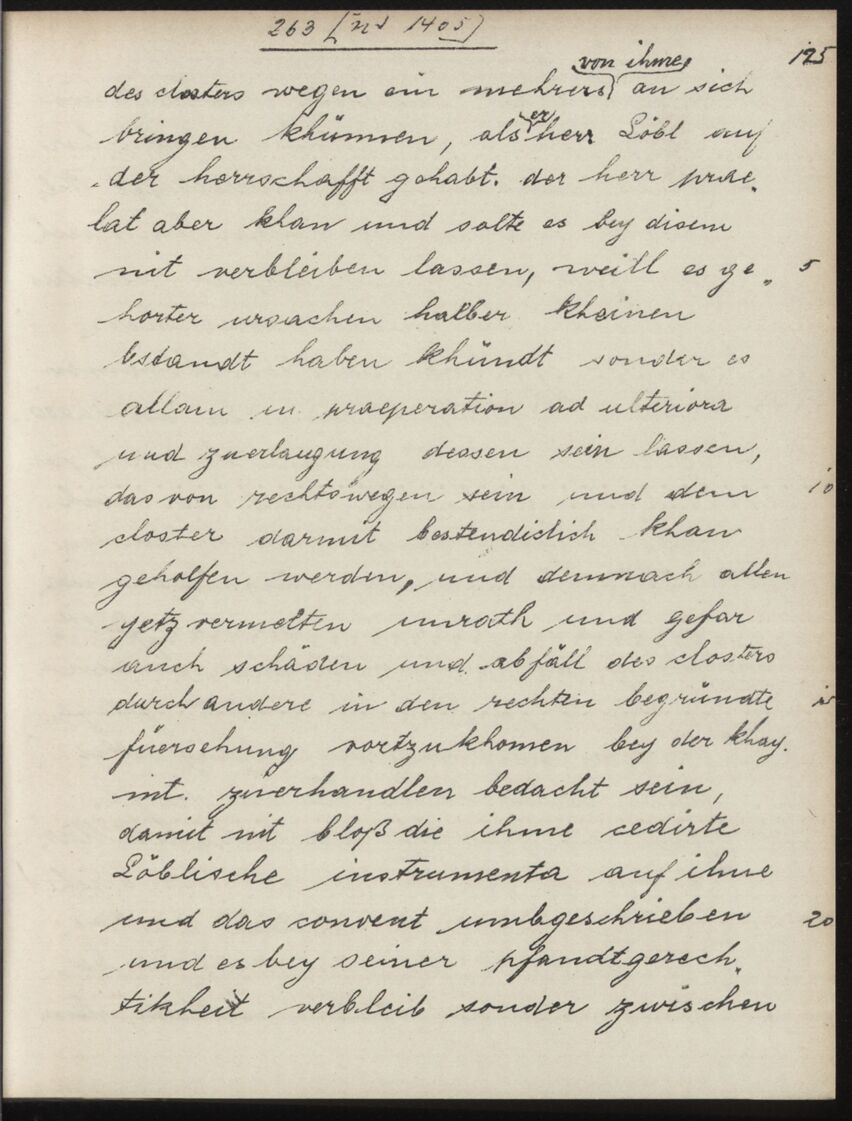 263 [nr 1405]
125
von ihme
des closters wegen ein mehrers an sich
er
bringen khünnen, als herr Löbl auf
der herrschafft gehabt. der herr prae„
lat aber khan und solte es bey disem
nit verbleiben lassen, weill es ge„ 5
horter ursachen halber kheinen
bstandt haben khündt sonder es
allain in praeperation ad ulteriora
und zuerlangung dessen sein lassen,
das von rechtswegen sein und dem 10
closter darmit bestendiclich khan
geholfen werden, und demnach allen
yetz vermelten unrath und gefar
auch schäden und abfäll des closters
durch andere in den rechten begründte
füersehung vortzukhomen bey der khay.
mt. zuerhandlen bedacht sein,
damit nit bloß die ihme cedirte
Löblische instrumenta auf ihne
und das convent umbgeschrieben 20
und es bey seiner pfandtgerech„
tikheit verbleib sonder zwischen